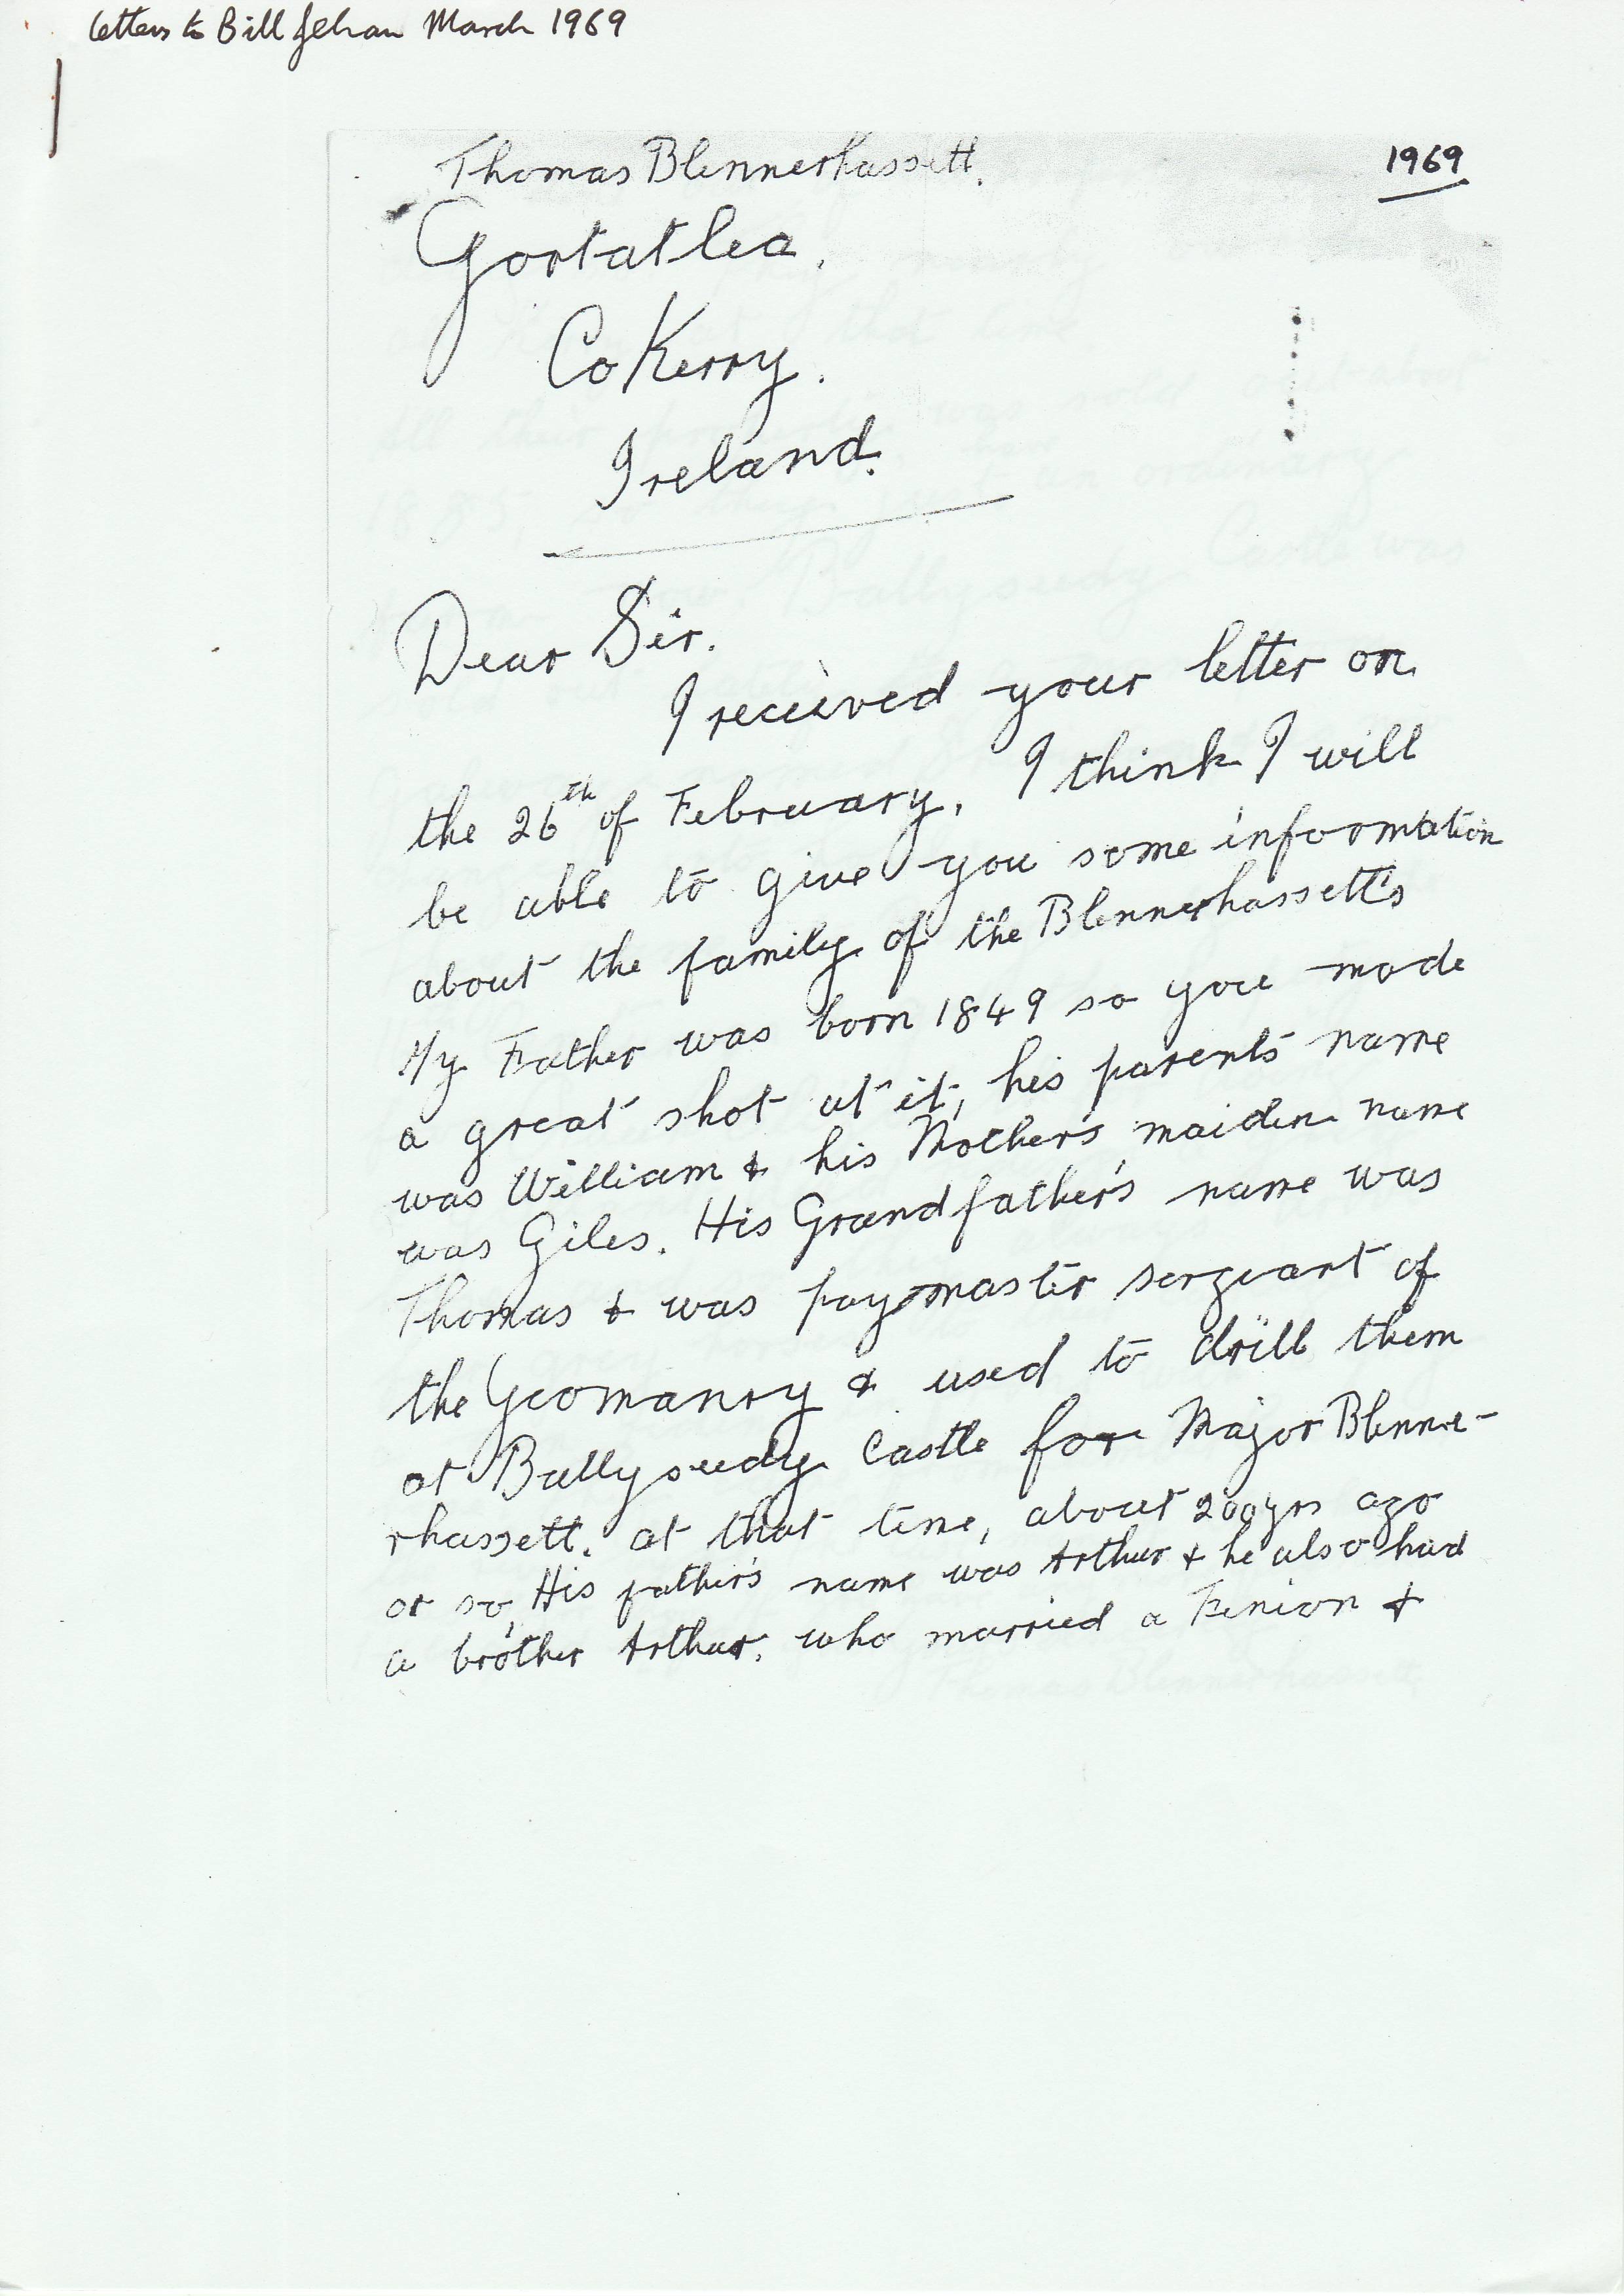 letters to Bill Jehan March 1969
1969
Thomas Blennerhassett.
Gortatlea.
Co Kerry.
Ireland.
Dear Sir.
I received your letter on
the 26th of February. I think I will
be able to give you some information
about the family of the Blennerhassett's
My Father was born 1849 so you made
a great shot at it, his parents name
was William & his Mother's maiden name
was Giles. His Grandfather's name was
Thomas & was paymaster sergeant of
the Yeomanry & used to drill them
at Ballyseedy Castle for Major Blenne-
rhassett. at that time, about 200yrs ago
or so, His father's name was Arthur & he also had
a brother Arthur. who married a Finion &